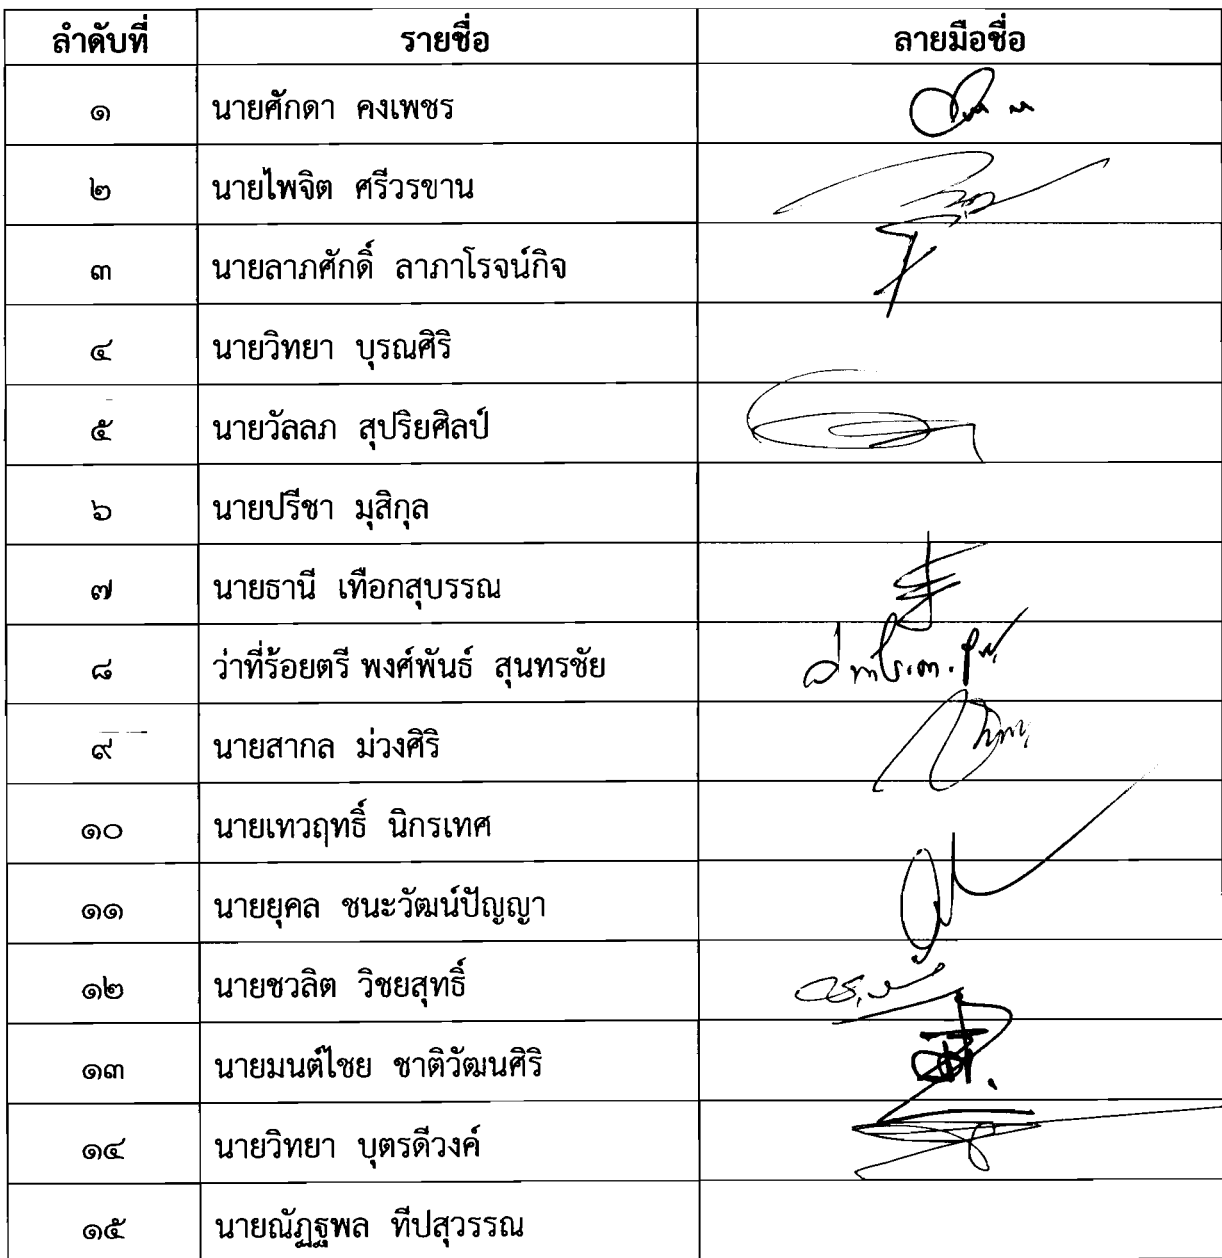 ลำดับที่ รายชื่อ ลายมือชื่อ
๑ นายศักดา คงเพชร
๒ นายไพจิต ศรีวรขาน
๓ นายลาภศักดิ์ ลาภาโรจน์กิจ
๔ นายวิทยา บุรณศิริ
๕ นายวัลลภ สุปริยศิลป์
๖ นายปรีชา มุสิกุล
๗ นายธานี เทือกสุบรรณ
๘ ว่าที่ร้อยตรี พงศ์พันธ์ สุนทรชัย
๙ นายสากล ม่วงศิริ
๑๐ นายเทวฤทธิ์ นิกรเทศ
๑๑ นายยุคล ชนะวัฒน์ปัญญา
๑๒ นายชวลิต วิชยสุทธิ์
๑๓ นายมนต์ไชย ชาติวัฒนศิริ
๑๔ นายวิทยา บุตรดีวงค์
๑๕ นายณัฏฐพล ทีปสุวรรณ